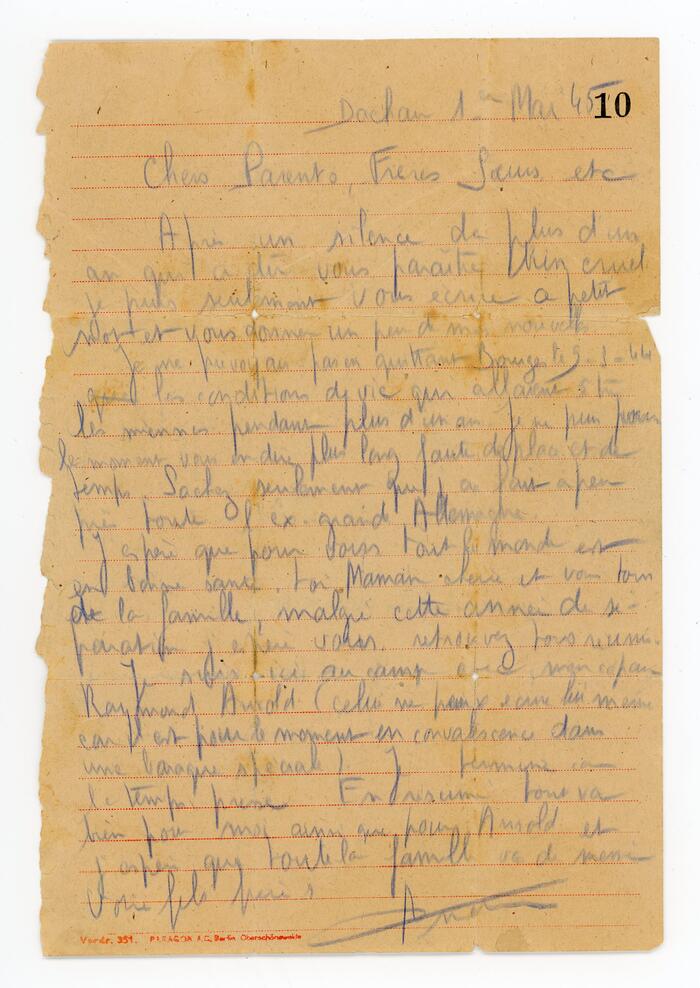 Dachau 1er Mai 45
10
Chers Parents, Frères Sœurs etc
Après un silence de plus d'un
an qui a dû vous paraître bien cruel
je puis seulement vous écrire ce petit
mot et vous donner un peu de mes nouvelles
Je ne prévoyais pas en quittant Bourges le 44
que les conditions de vie qui allaient être
les miennes pendant plus d'un an. Je ne puis pour
le moment vous en dire plus long faute de place et de
temps. Sachez seulement que j'ai fait à peu
près toute l'ex-grande Allemagne.
J'espère que pour vous tout le monde est
en bonne santé, toi Maman chérie et vous tous
de la famille, malgré cette année de sé-
paration j'espère vous retrouver tous réunis.
Je suis ici au camp avec mon copain
Raymond Arnold (celui ne peux écrire lui même
car il est pour le moment en convalescence dans
une baraque spéciale). Je termine car
le temps presse. En résumé tout va
bien pour moi ainsi que pour Arnold et
j'espère que toute la famille va de même
Votre fils
Vordr. 351. PARAGON A.G. Berlin Oberschöneweide